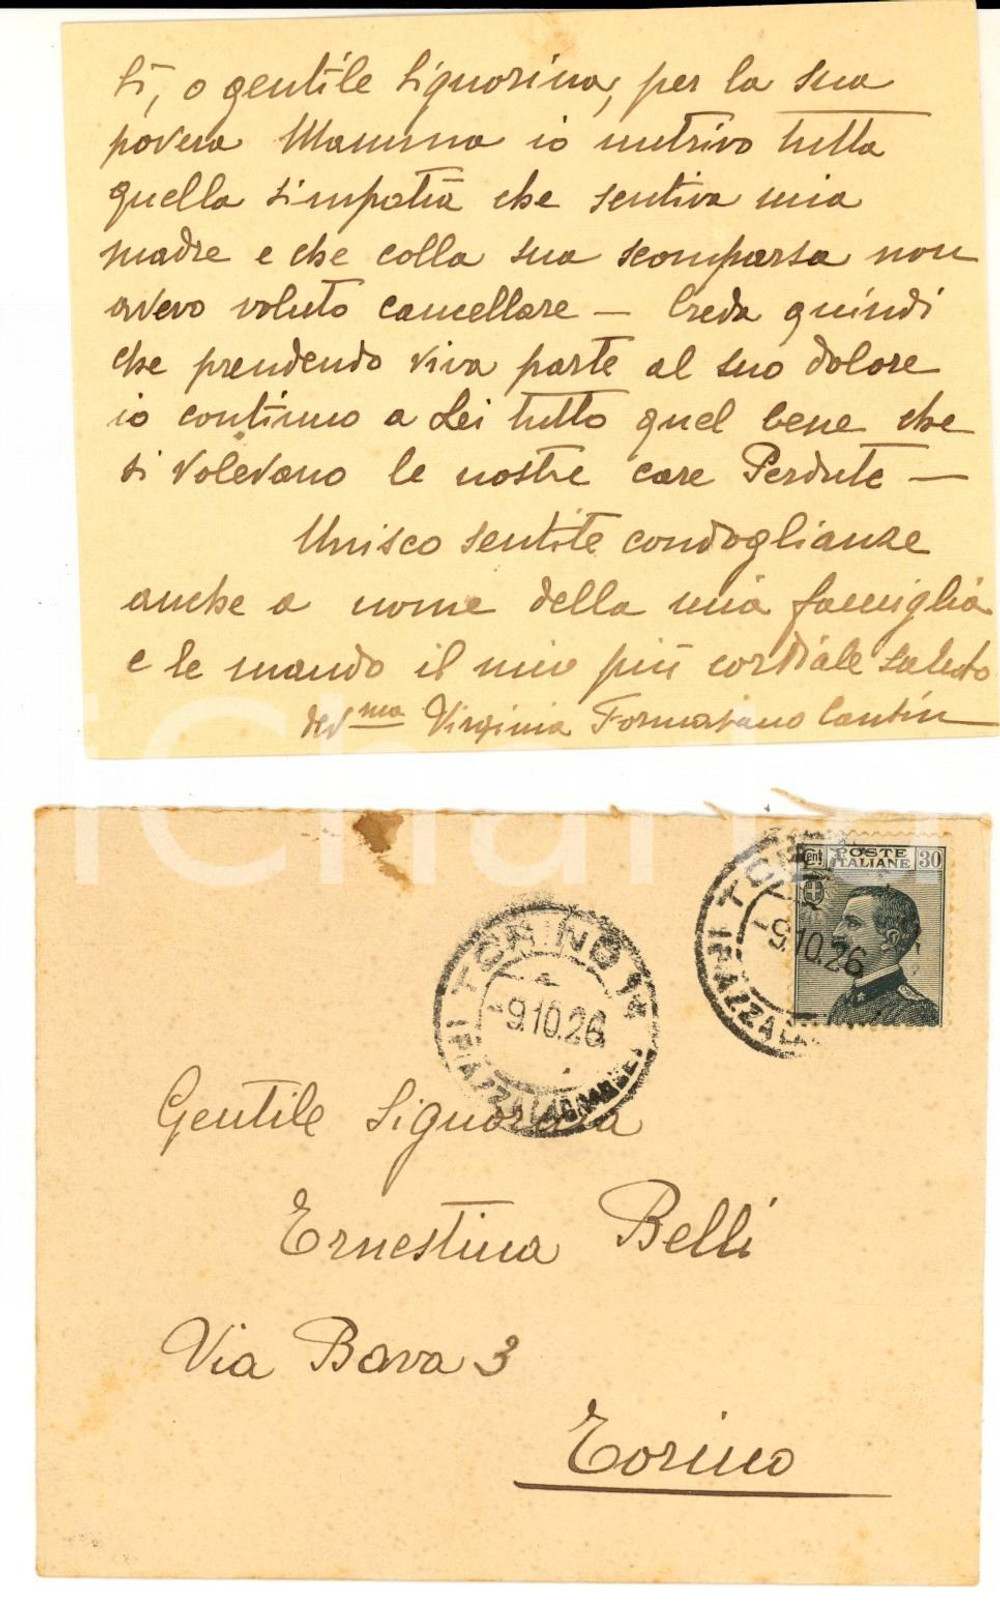 Sì, o gentile Signorina, per la sua
povera Mamma io nutrivo tutta
quella simpatia che sentiva mia
madre e che colla sua scomparsa non
avevo voluto cancellare — Creda quindi
che prendendo viva parte al suo dolore
io continuo a Lei tutto quel bene che
si volevano le nostre care Perdute —
Unisco sentite condoglianze
anche a nome della mia famiglia
e le mando il mio più cordiale saluto
dev.ma Virginia Formasiano Cantin
Cent POSTE ITALIANE 30
TORINO
-9.10.26
TORINO
-9.10.26
Gentile Signorina
Ernestina Belli
Via Bava 3
Torino